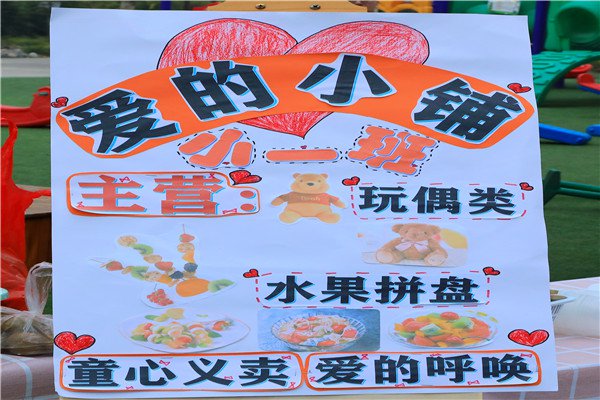 爱的小铺
小一班
主营：
玩偶类
水果拼盘
童心义卖 爱的呼唤